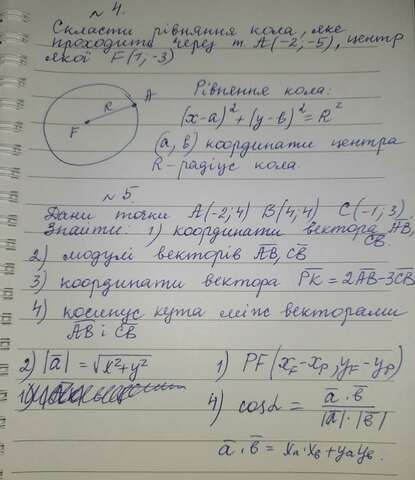 № 4.
Скласти рівняння кола, яке
проходить через т A(-2;-5), центр
якої F(1;-3)
Рівняння кола:
(x-a)² + (y-b)² = R²
(a, b) координати центра
R - радіус кола.
R A
F
№ 5.
Дани точки A(-2;4) B(4;4) C(-1;3)
Знайти: 1) координати вектора AB,
CB.
2) модулі векторів AB, CB
3) координати вектора PK = 2AB-3CB
4) косинус кута між векторами
AB і CB
2) |a| = √x²+y² 1) PF(xF-xP; yF-yP)
4) cosα = a·b / |a|·|b|
a·b = xa·xb + yayb.